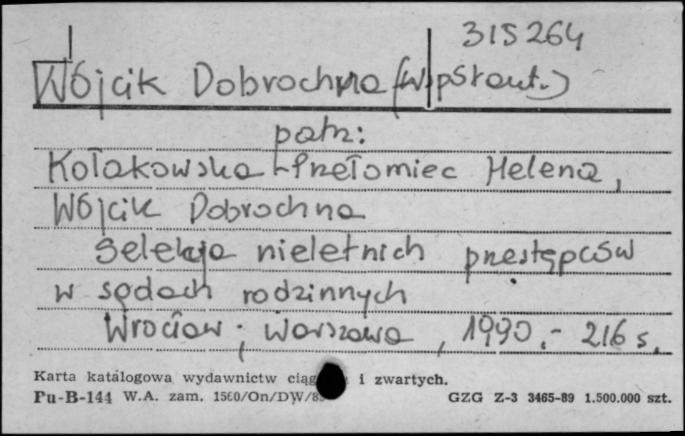 315264
Wójcik Dobrochna (współaut.)
patrz:
Kołakowska-Przełomiec Helena,
Wójcik Dobrochna
Selekcja nieletnich przestępców
w sądach rodzinnych
Wrocław; Warszawa, 1990.- 216 s.
Karta katalogowa wydawnictw i zwartych.
Pu-B-144 W.A. zam. 1560/On/DW/8
GZG Z-3 3465-89 1.500.000 szt.